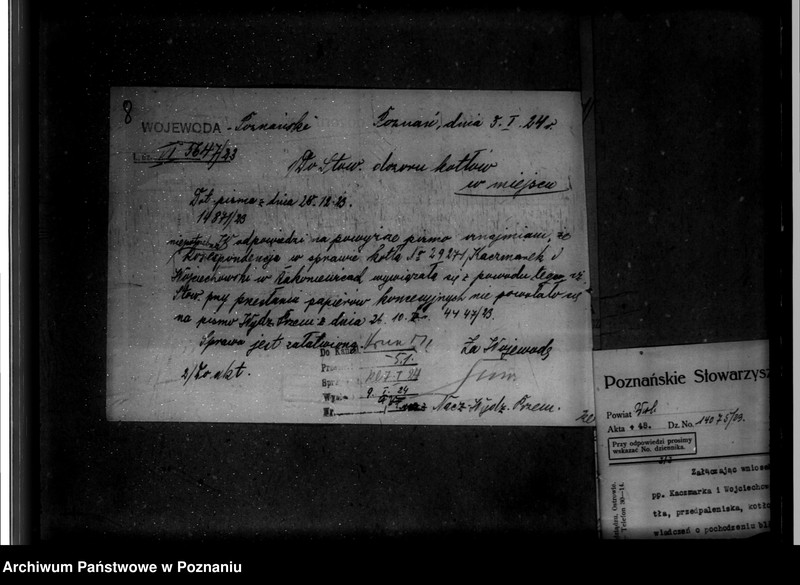 8
WOJEWODA - Poznański Poznań, dnia 5. I. 24 r.
L. dz. II 5647/23
Do Stow. dozoru kotłów
w miejscu
Dot. pisma z dnia 28.12.23.
14871/23
W odpowiedzi na powyższe pismo uznajmiam, że
korespondencja w sprawie kotła № 29271 Kaczmarek i
Wojciechowski w Rakoniewicach wywiązała się z powodu tego, iż
Stow. przy przesłaniu papierów koncesyjnych nie powołało się
na pismo Wydz. Przem. z dnia 26. 10. 4447/23.
Sprawa jest załatwiona.
Za Wojewodę
2/ Do akt.
Do Kanc.
5.1.
7 I 24
9. I. 24
Nr.
Nacz. Wydz. Przem.
Poznańskie Słowarzysz
Powiat Wol.
Akta + 48. Dz. No. 14075/23.
Przy odpowiedzi prosimy
wskazać No. dziennika.
Załączając wniose
pp. Kaczmarka i Wojciechow
tła, przedpaleniska, kotło
wiadczeń o pochodzeniu bl
Ostrowie.
Telefon 30-14.
Archiwum Państwowe w Poznaniu